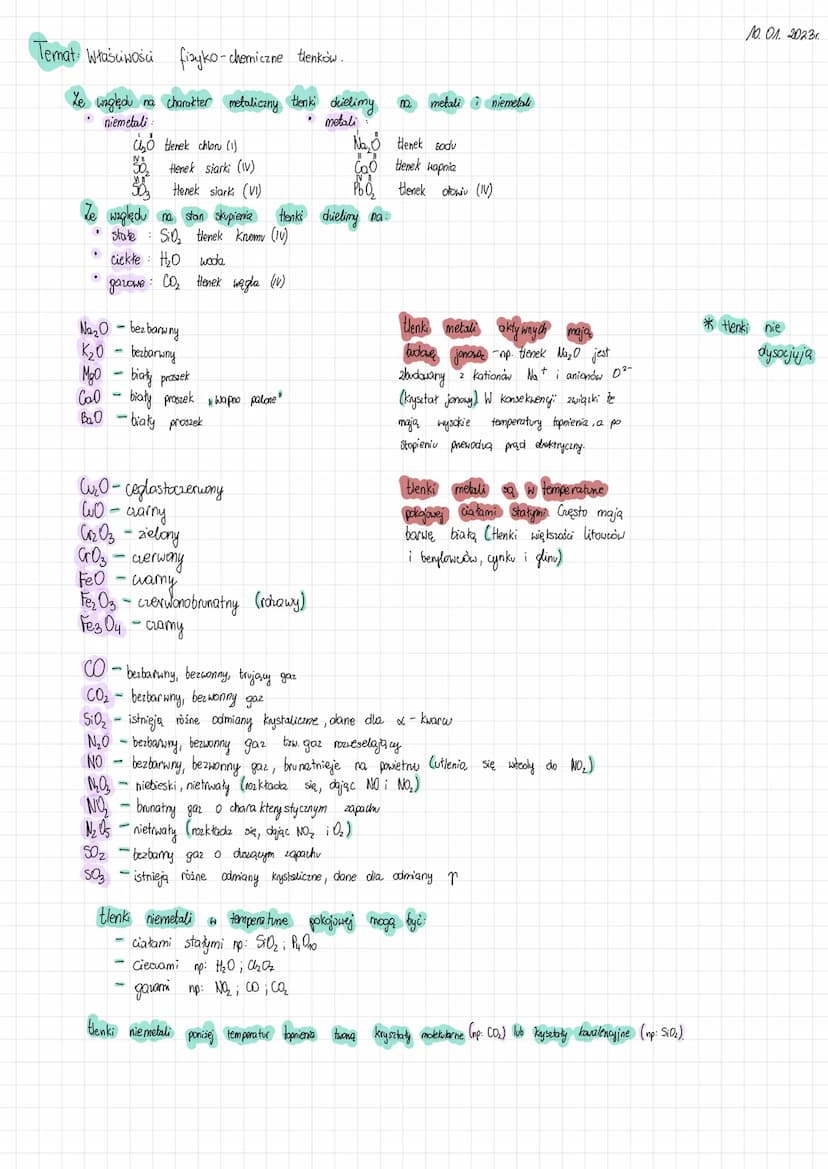 10.01.2023r.
Temat: Właściwości fizyko-chemiczne tlenków.
Ze względu na charakter metaliczny tlenki dzielimy na metali i niemetali
• niemetali: • metali:
Cl₂O tlenek chloru (I) Na₂O tlenek sodu
SO₂ tlenek siarki (IV) CaO tlenek wapnia
SO₃ tlenek siarki (VI) PbO₂ tlenek ołowiu (IV)
Ze względu na stan skupienia tlenki dzielimy na:
• stałe: SiO₂ tlenek krzemu (IV)
• ciekłe: H₂O woda
• gazowe: CO₂ tlenek węgla (IV)
Na₂O – bezbarwny
K₂O – bezbarwny
MgO – biały proszek
CaO – biały proszek „wapno palone"
BaO – biały proszek
tlenki metali aktywnych mają
budowę jonową – np. tlenek Na₂O jest
zbudowany z kationów Na⁺ i anionów O²⁻
(kryształ jonowy) W konsekwencji związki te
mają wysokie temperatury topnienia, a po
stopieniu przewodzą prąd elektryczny.
* tlenki nie
dysocjują
Cu₂O – ceglastoczerwony
CuO – czarny
Cr₂O₃ – zielony
CrO₃ – czerwony
FeO – czarny
Fe₂O₃ – czerwonobrunatny (rdzawy)
Fe₃O₄ – czarny
tlenki metali są w temperaturze
pokojowej ciałami stałymi. Często mają
barwę białą (tlenki większości litowców
i berylowców, cynku i glinu)
CO – bezbarwny, bezwonny, trujący gaz
CO₂ – bezbarwny, bezwonny gaz
SiO₂ – istnieją różne odmiany krystaliczne, dane dla α – kwarcu
N₂O – bezbarwny, bezwonny gaz tzw. gaz rozweselający
NO – bezbarwny, bezwonny gaz, brunatnieje na powietrzu (utlenia się wtedy do NO₂)
N₂O₃ – niebieski, nietrwały (rozkłada się, dając NO i NO₂)
NO₂ – brunatny gaz o charakterystycznym zapachu
N₂O₅ – nietrwały (rozkłada się, dając NO₂ i O₂)
SO₂ – bezbarwny gaz o duszącym zapachu
SO₃ – istnieją różne odmiany krystaliczne, dane dla odmiany γ
tlenki niemetali w temperaturze pokojowej mogą być:
– ciałami stałymi np: SiO₂ ; P₄O₁₀
– cieczami np: H₂O ; Cl₂O₇
– gazami np: NO₂ ; CO ; CO₂
tlenki niemetali poniżej temperatur topnienia tworzą kryształy molekularne (np: CO₂) lub kryształy kowalencyjne (np: SiO₂).